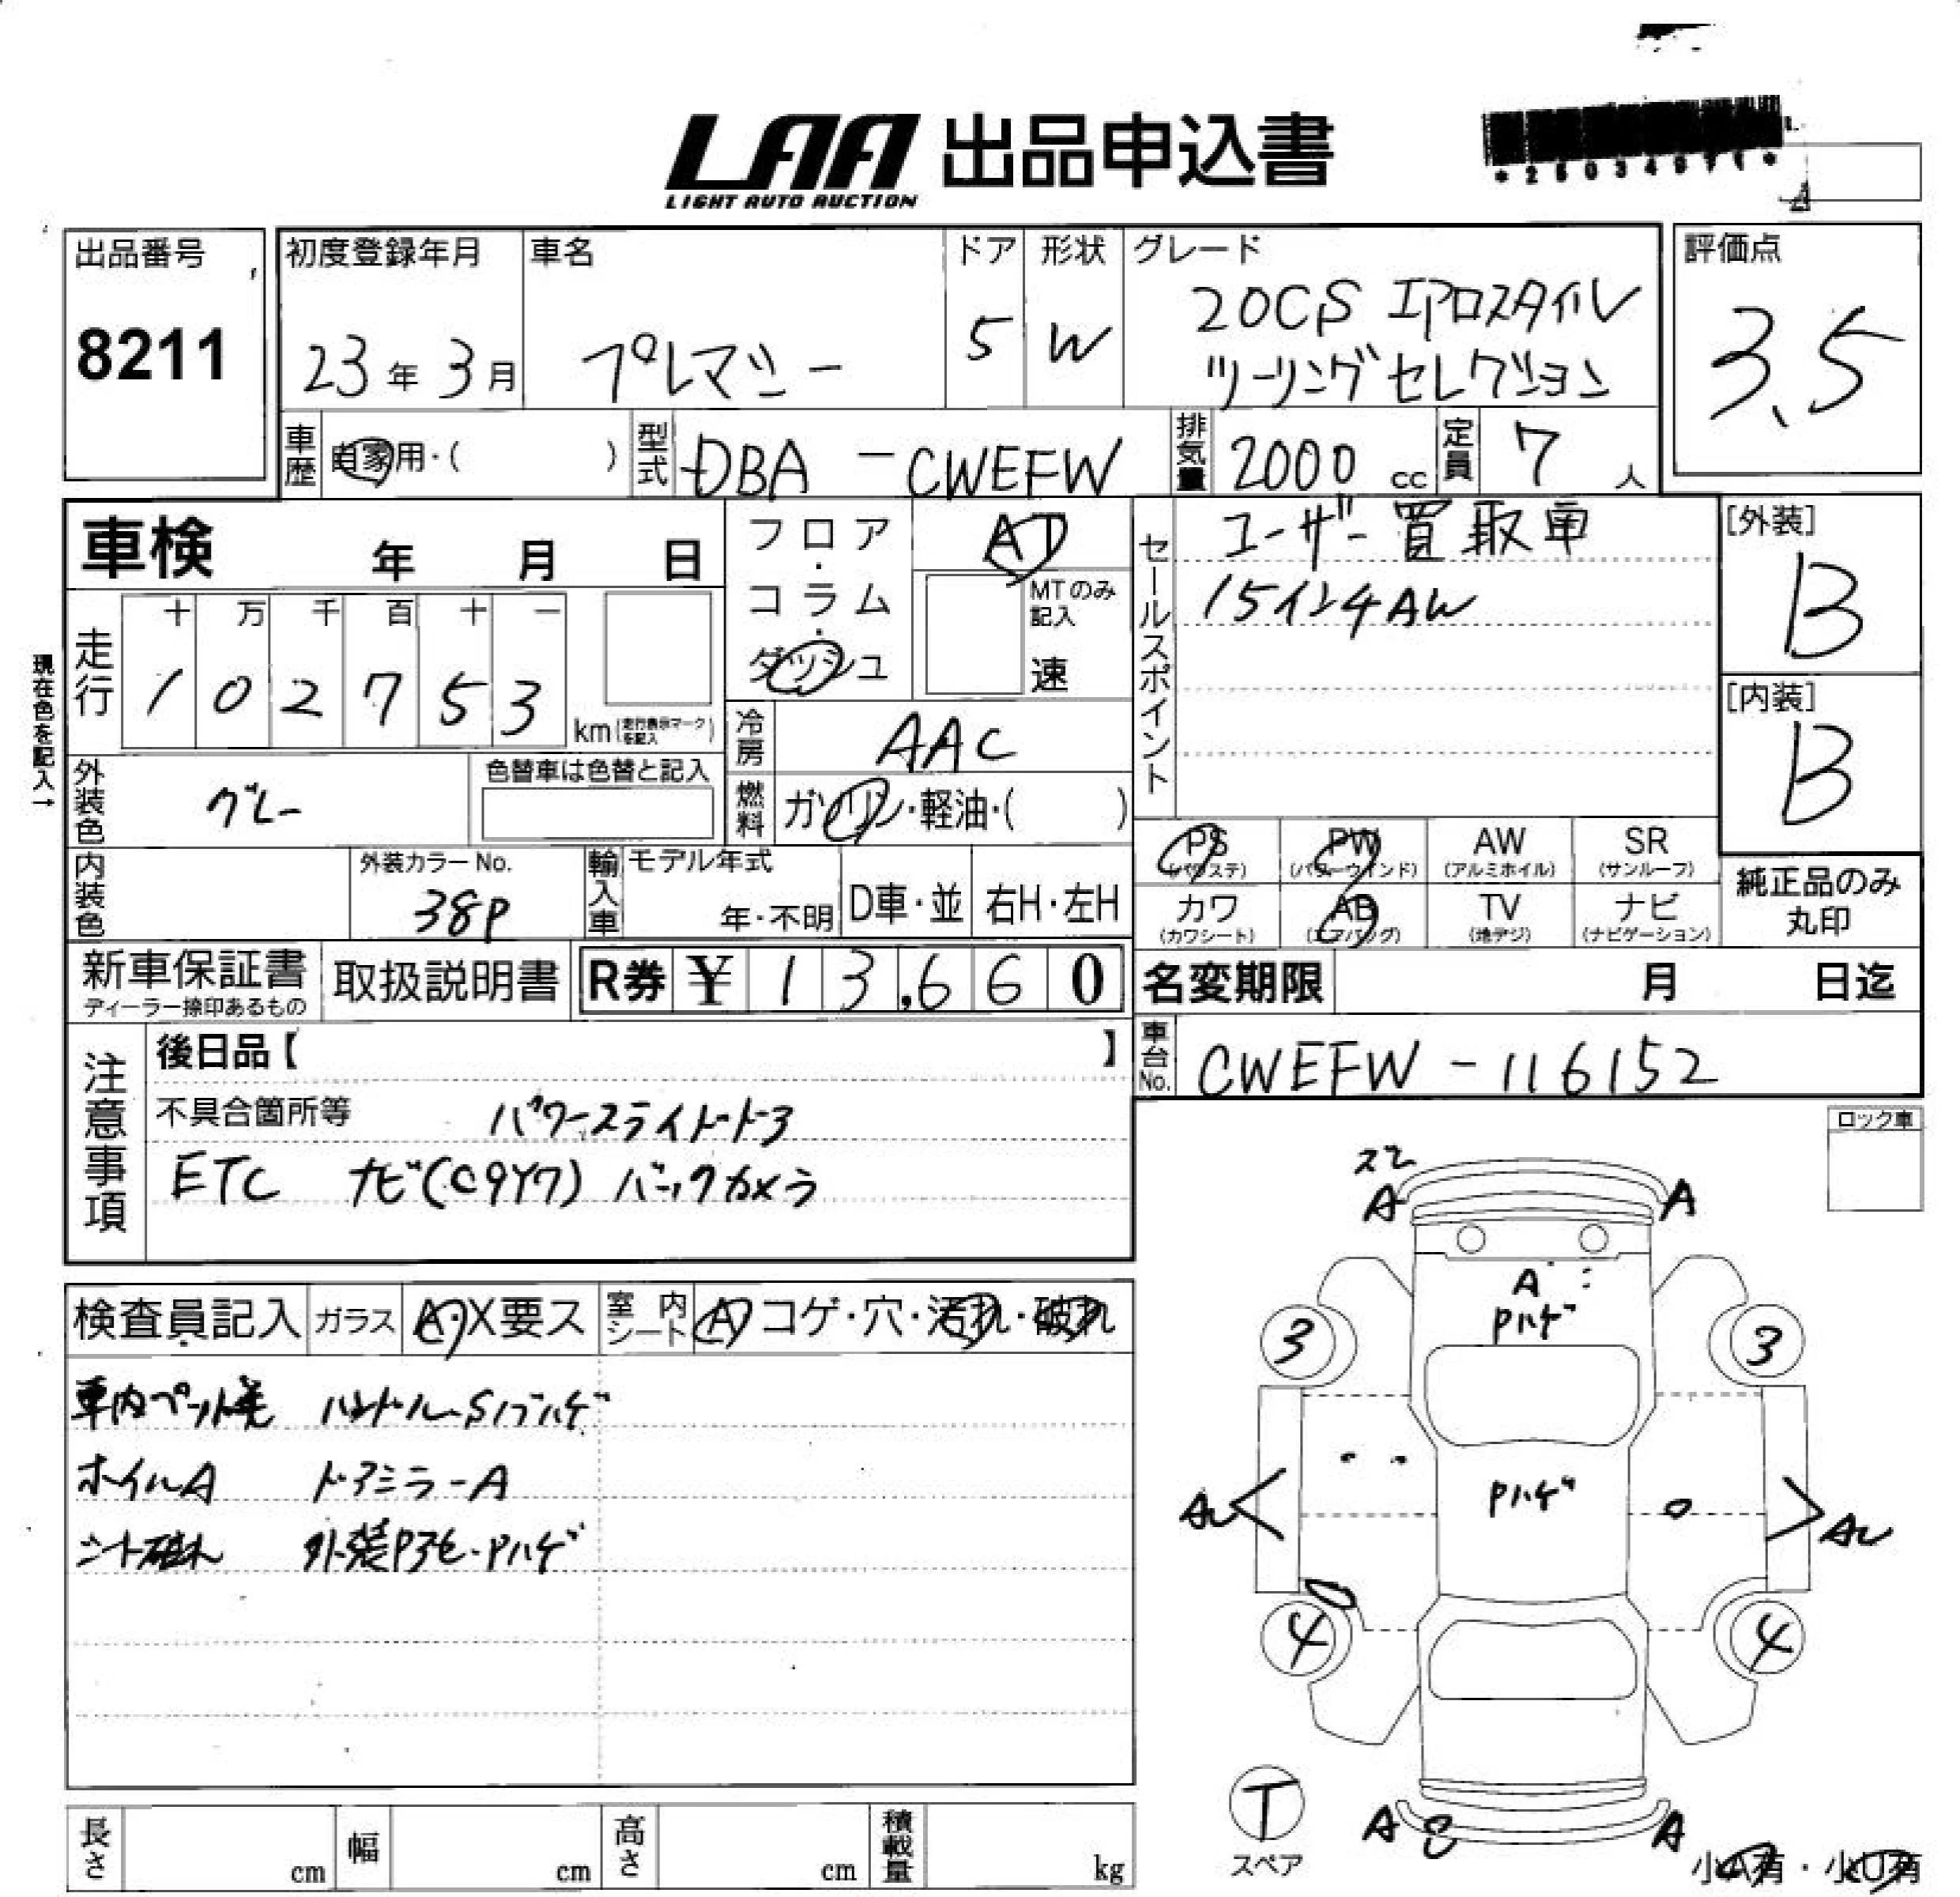 LAA 出品申込書
LIGHT AUTO AUCTION
出品番号
8211
初度登録年月
23年3月
車名
プレマシー
ドア
5
形状
W
グレード
20CS エアロスタイル
ツーリングセレクション
評価点
3.5
車歴
自家用・( )
型式
DBA-CWEFW
排気量
2000 cc
定員
7人
車検 年 月 日
フロア・コラム・ダッシュ
AT
MTのみ記入
速
セールスポイント
ユーザー買取車
15インチAW
[外装]
B
[内装]
B
現在色を記入→
走行
十 万 千 百 十 一
1 0 2 7 5 3
km(走行表示マークを記入)
冷房
AAC
外装色
グレー
色替車は色替と記入
燃料
ガソリン・軽油・( )
PS
(パワステ)
PW
(パワーウインド)
AW
(アルミホイル)
SR
(サンルーフ)
カワ
(カワシート)
AB
(エアバッグ)
TV
(地デジ)
ナビ
(ナビゲーション)
純正品のみ
丸印
内装色
外装カラーNo.
38P
輸入車
モデル年式
年・不明
D車・並
右H・左H
新車保証書
ディーラー捺印あるもの
取扱説明書
R券 ¥ 13,660
名変期限 月 日迄
車台No.
CWEFW-116152
注意事項
後日品【 】
不具合箇所等 パワースライドドア
ETC ナビ(C9Y7) バックカメラ
ロック車
検査員記入
ガラス
A・X要ス
室内シート
A コゲ・穴・汚れ・破れ
ホイルA ドアミラーA
A
A
A
Pハゲ
3
3
Pハゲ
4
4
T
スペア
A
A
小A有・小U有
長さ cm
幅 cm
高さ cm
積載量 kg